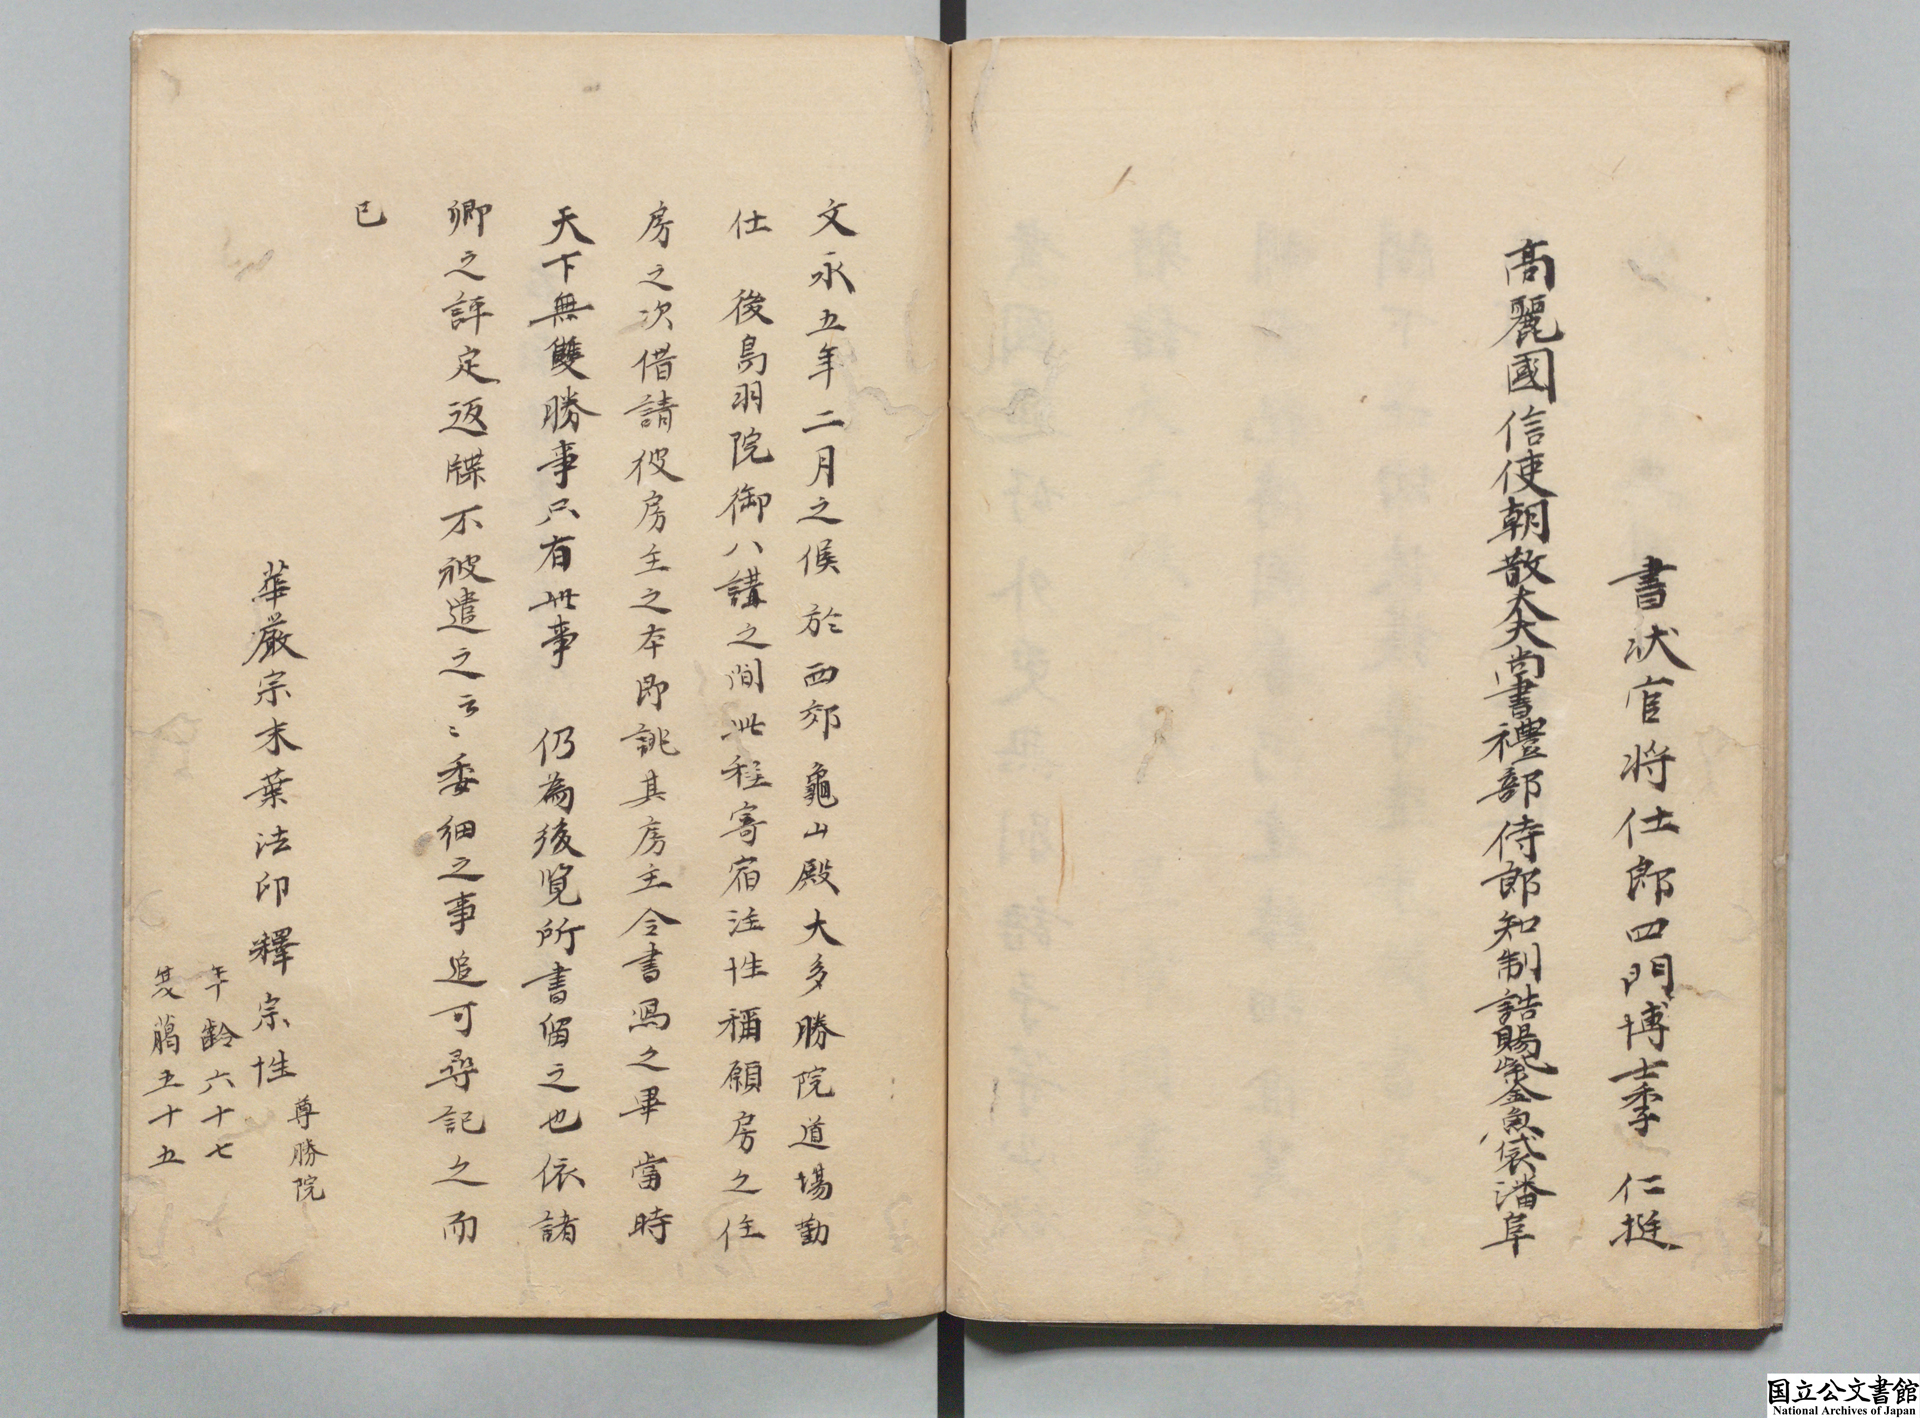 書狀官將仕郎四門博士李 仁挺
高麗國信使朝散大夫尚書禮部侍郎知制誥賜紫金魚袋潘阜
文永五年二月之候於西郊龜山殿大多勝院道場勤
仕 後鳥羽院御八講之間此程寄宿法性稱願房之住
房之次借請彼房主之本即誂其房主令書寫之畢當時
天下無雙勝事只有此事 仍為後覽所書留之也依諸
卿之評定返牒不被遣之云〻委細之事追可尋記之而
已
華嚴宗末葉法印釋宗性
尊勝院
年齡六十七
夏﨟五十五
国立公文書館
National Archives of Japan